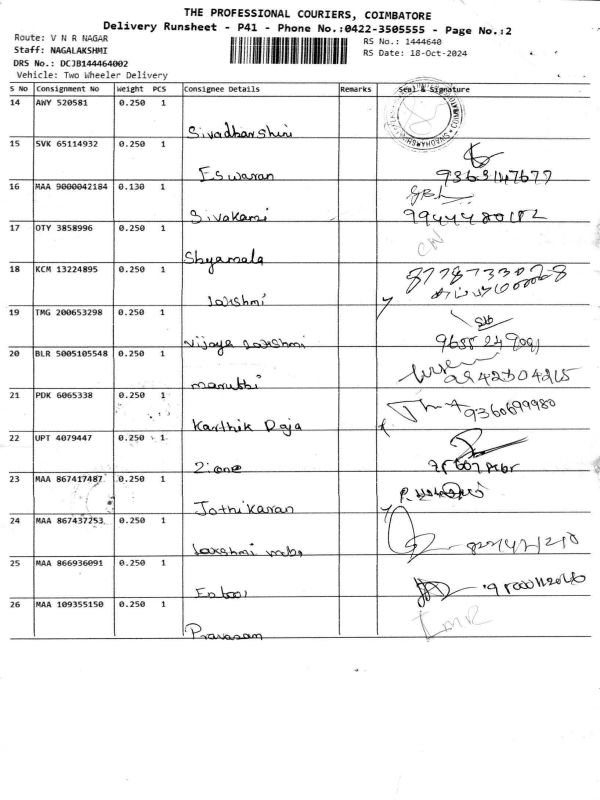 THE PROFESSIONAL COURIERS, COIMBATORE
Delivery Runsheet - P41 - Phone No.:0422-3505555 - Page No.:2
Route: V N R NAGAR
RS No.: 1444640
Staff: NAGALAKSHMI
RS Date: 18-Oct-2024
DRS No.: DCJB144464002
Vehicle: Two Wheeler Delivery
S No Consignment No Weight PCS Consignee Details Remarks Seal & Signature
14 AWY 520581 0.250 1
Sivadharshini
15 SVK 65114932 0.250 1
Eswaran
16 MAA 9000042184 0.130 1
Sivakami
17 OTY 3858996 0.250 1
Shyamala
18 KCM 13224895 0.250 1
Lakshmi
19 TMG 200653298 0.250 1
Vijaya Lakshmi
20 BLR 5005105548 0.250 1
maruthi
21 PDK 6065338 0.250 1
9360699980
Karthik Raja
22 UPT 4079447 0.250 1
Zione
23 MAA 867417487 0.250 1
Jothikaran
24 MAA 867437253 0.250 1
Lakshmi
25 MAA 866936091 0.250 1
26 MAA 109355150 0.250 1